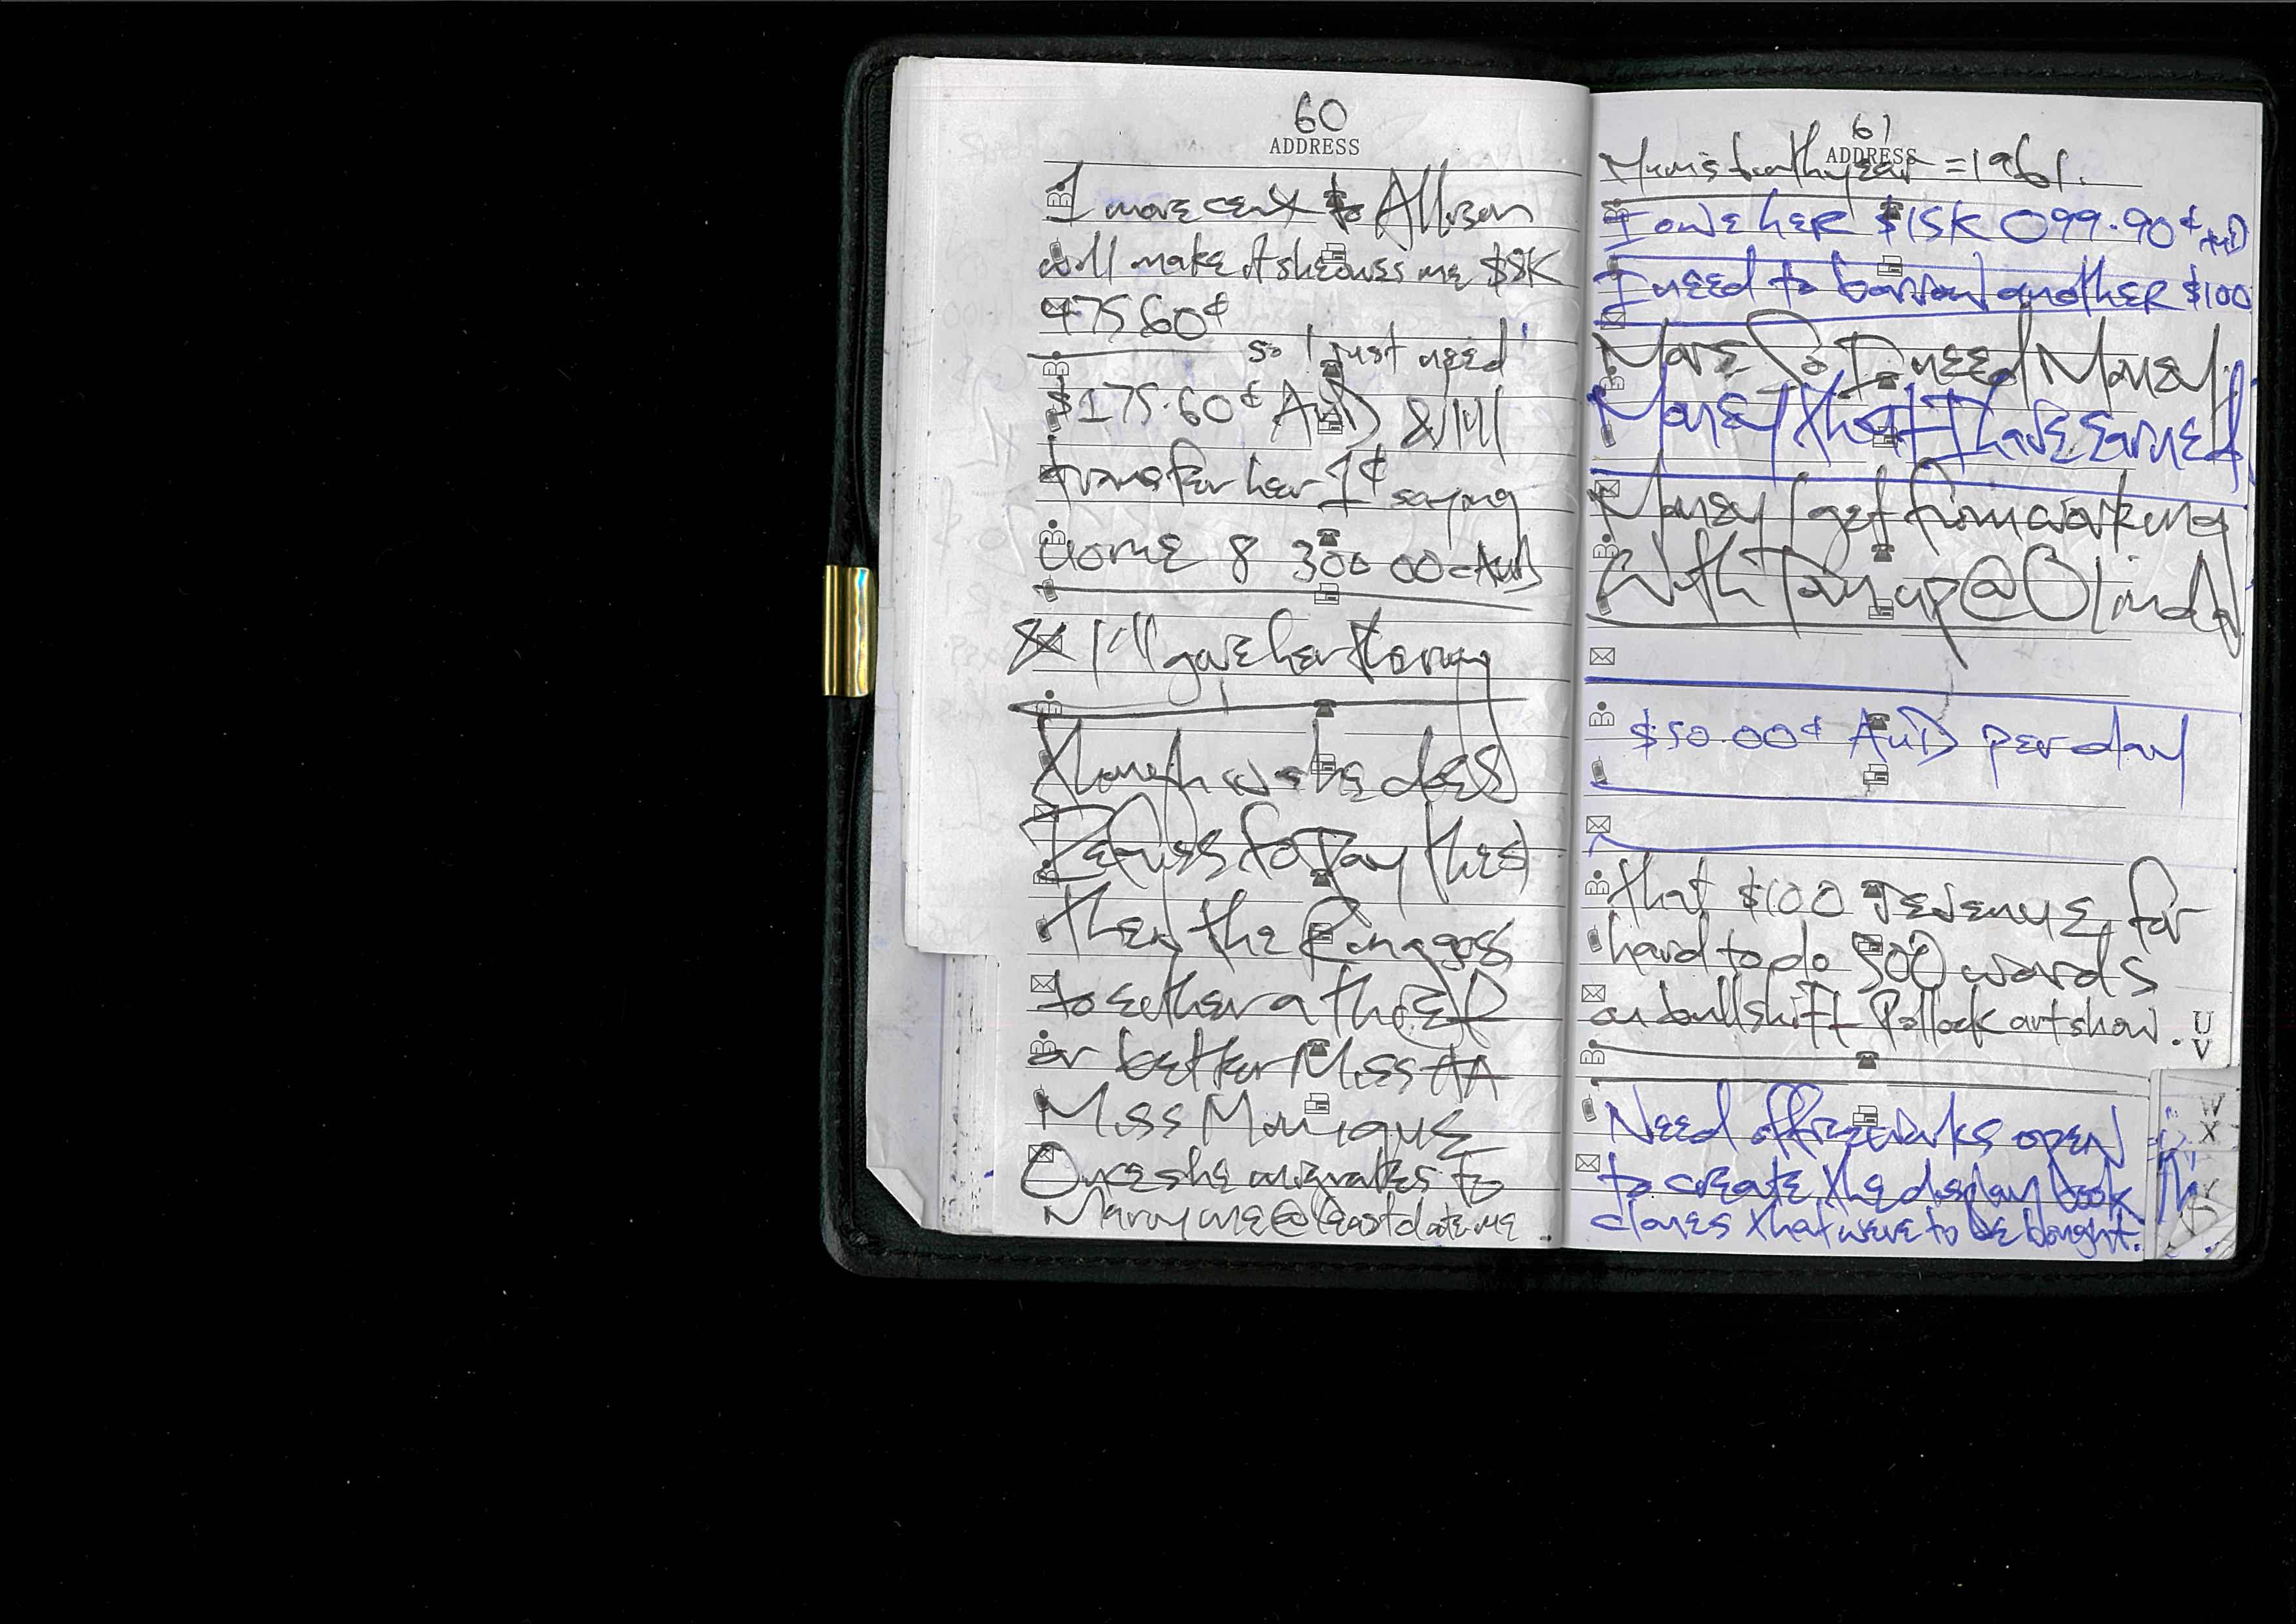 60
ADDRESS
1 more cent to Allison
will make it she owes me $8K
475 60¢
so I just need
$175.60¢ AUD & I'll
transfer her 1¢ saying
UOME 8 300 00c AUD
& I'll give her the ring
Though she does
Refuse to Pay this
then the Ring goes
to either a
or better Miss AA
Miss Monique
Once she migrates to
Marry me @ least date me
61
ADDRESS
Mum's birthyear = 1961.
I owe her $15K 099.90¢ AUD
I need to borrow another $100
More So I need Money.
Money that I have Earned
Money I get from working
With Tony up @ Olinda
$50.00¢ AUD per day
that $100 revenue for
hard to do 500 words
on bullshitt Pollock art show.
U
V
Need officeworks open
to create the display book
clones that were to be bought.
W
X
Y